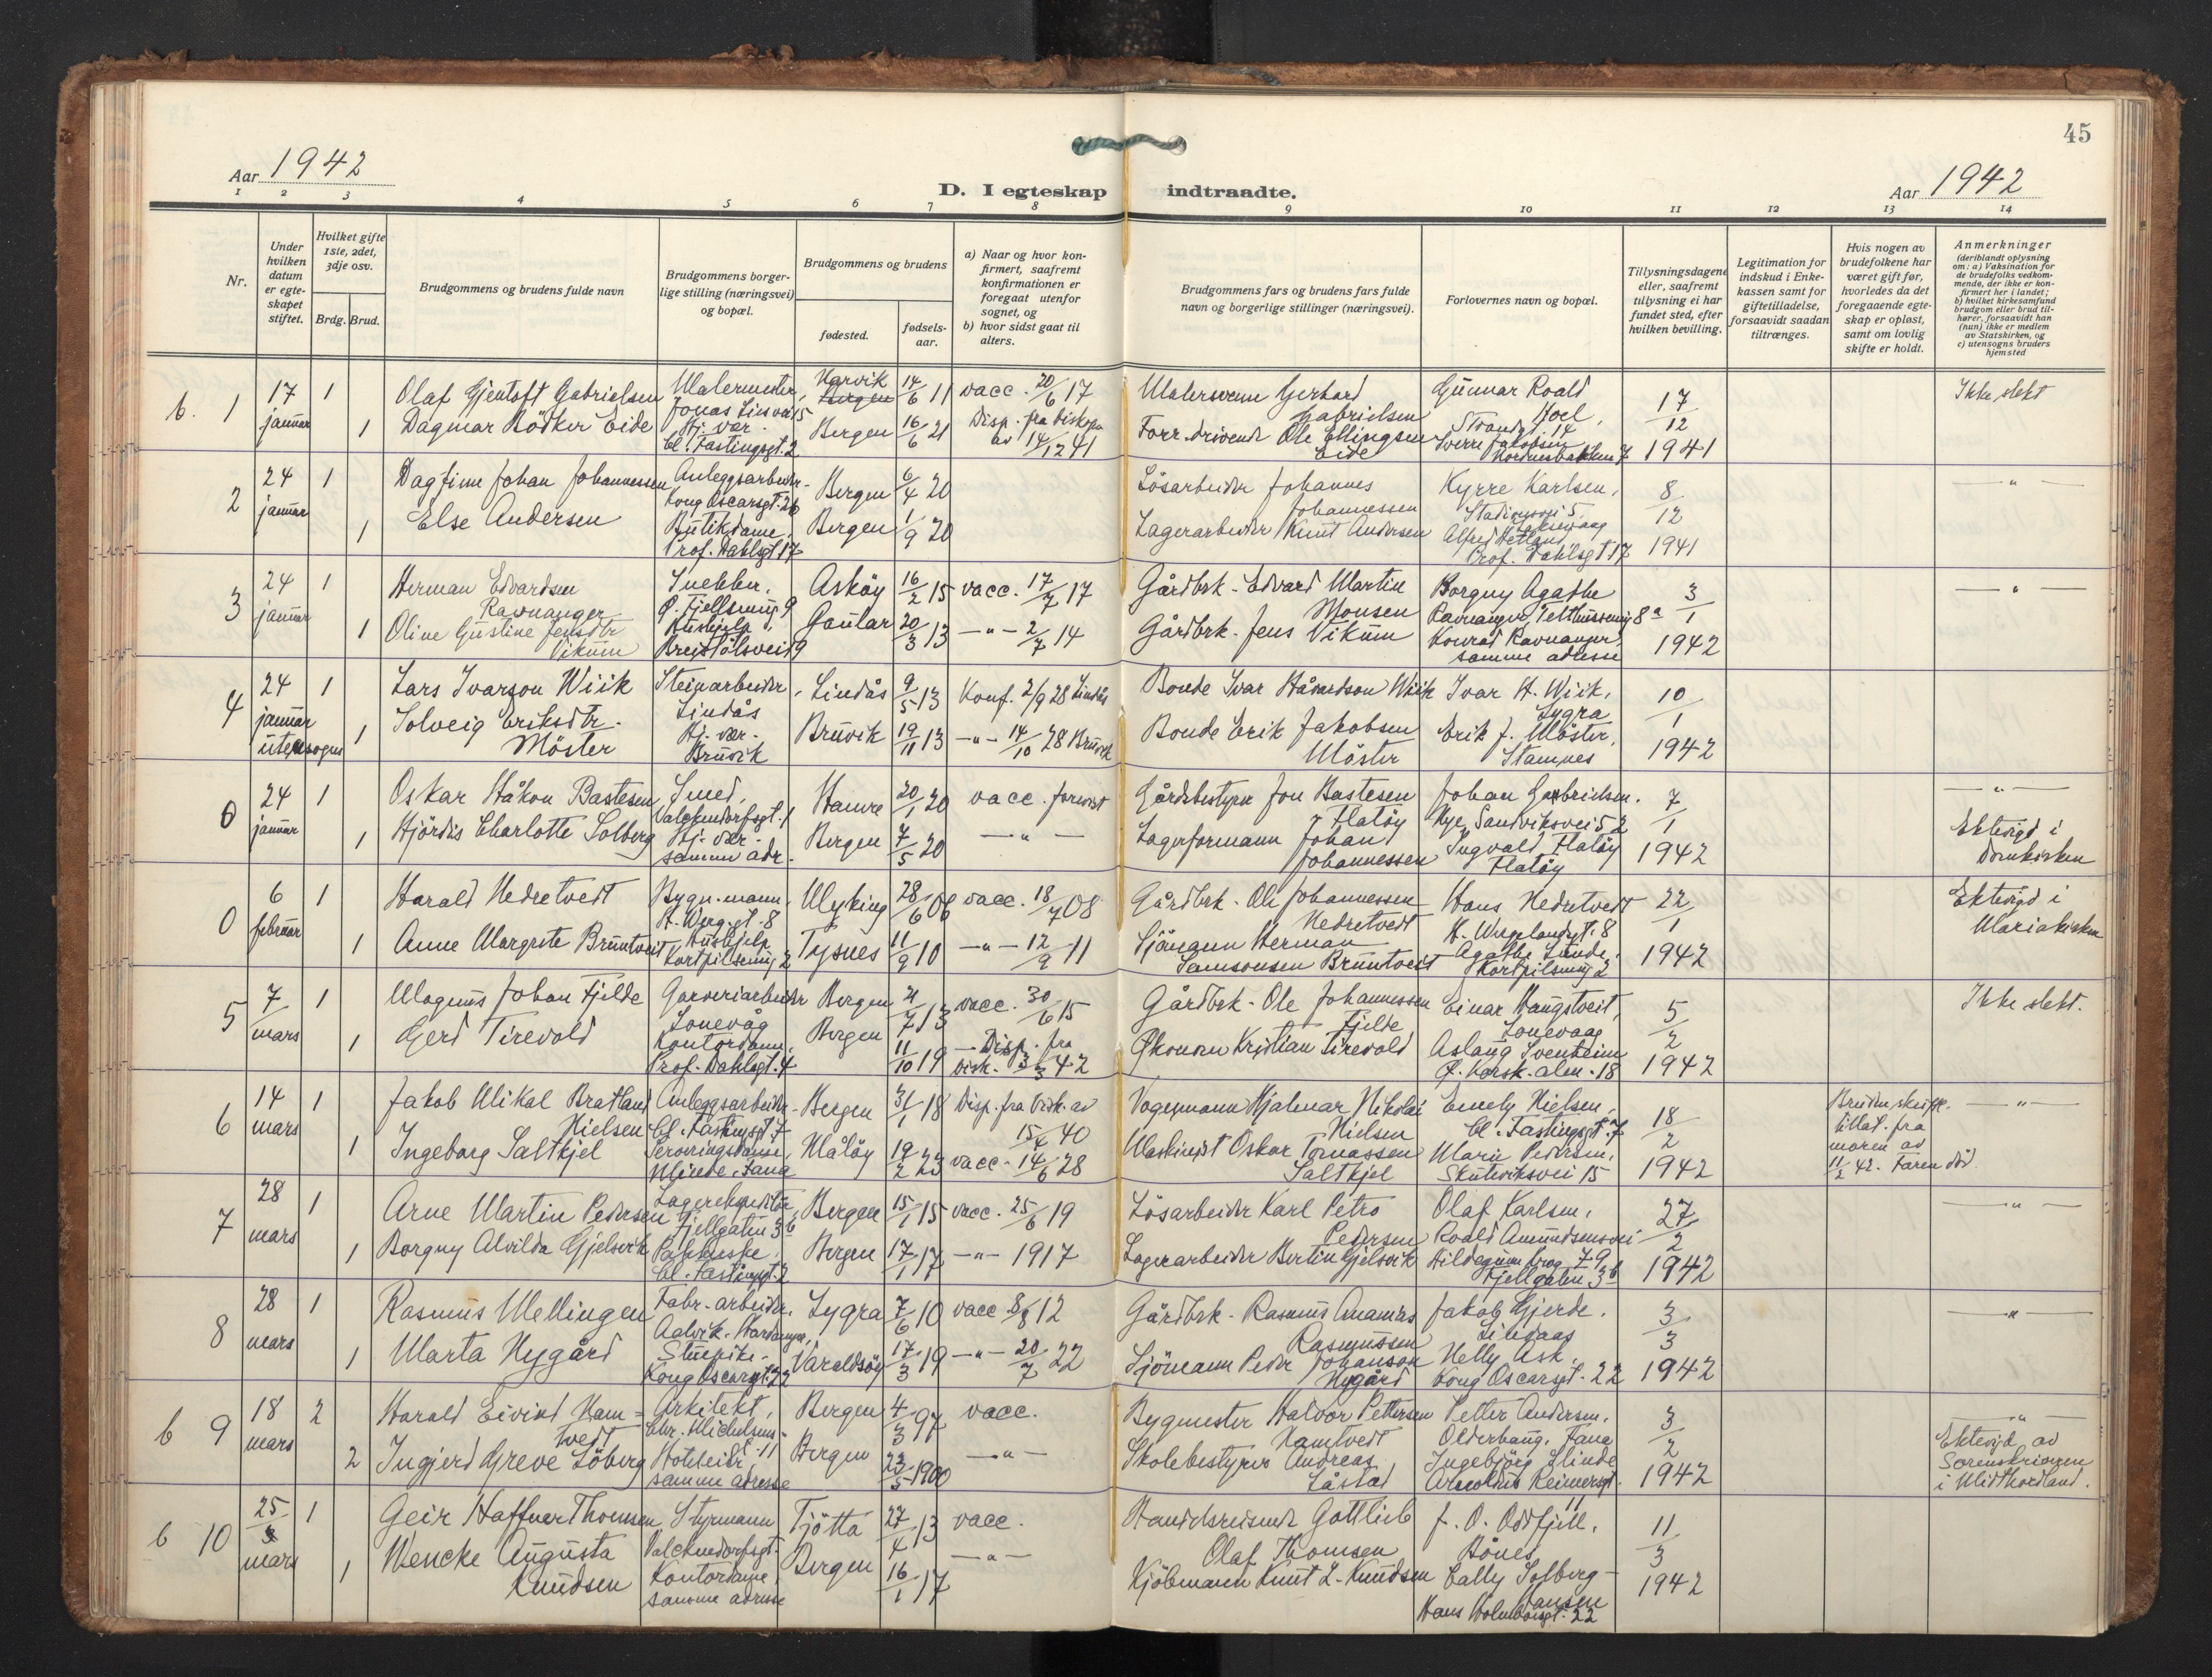 45
Aar 1942
D. I egteskap indtraadte.
Aar 1942
1 2 3 4 5 6 7 8 9 10 11 12 13 14
Nr.
Under hvilken datum er egteskapet stiftet.
Hvilket gifte 1ste, 2det, 3dje osv.
Brdg. Brud.
Brudgommens og brudens fulde navn
Brudgommens borgerlige stilling (næringsvei) og bopæl.
Brudgommens og brudens
fødested.
fødselsaar.
a) Naar og hvor konfirmert, saafremt konfirmationen er foregaat utenfor sognet, og
b) hvor sidst gaat til alters.
Brudgommens fars og brudens fars fulde navn og borgerlige stillinger (næringsvei).
Forlovernes navn og bopæl.
Tillysningsdagene eller, saafremt tillysning ei har fundet sted, efter hvilken bevilling.
Legitimation for indskud i Enkekassen samt for giftetilladelse, forsaavidt saadan tiltrænges.
Hvis nogen av brudefolkene har været gift før, hvorledes da det foregaaende egteskap er opløst, samt om lovlig skifte er holdt.
Anmerkninger
(deriblandt oplysning om: a) Vaksination for de brudefolks vedkommende, der ikke er konfirmert her i landet; b) hvilket kirkesamfund brudgom eller brud tilhører, forsaavidt han (hun) ikke er medlem av Statskirken, og c) utensogns bruders hjemsted
b. 1 17 januar 1 Olaf Gjentoft Gabrielsen Malermester, Jonas Liesvei 15 Narvik Bergen 14/6 11 vacc. 20/6 17 Malersvenn Gerhard Gabrielsen Gunnar Roald Hoel, Strandgt. 14 17/12 1941 Ikke slekt
1 Dagmar Rödker Eide Hj. vær. Cl. Fastingsgt. 2 Bergen 16/6 21 Disp. fra biskopen av 14/12 41 Forr.drivende Ole Ellingsen Eide Sverre Jakobsen Nordnesbakken 7
2 24 januar 1 Dagfinn Johan Johannessen Anleggsarbeider Kong Oscarsgt. 26 Bergen 6/4 20 Lösarbeider Johannes Johannessen Kyrre Karlsen, 8/12 1941 — " —
1 Else Andersen Butikdame, Prof. Dahlsgt. 17 Bergen 1/9 20 Lagerarbeider Knut Andersen Alfred Hetland, Prof. Dahlsgt 17
3 24 januar 1 Herman Edvardsen Ravnanger Snekker, Ö. Fjellsmug 9 Asköy 16/2 15 vacc. 17/7 17 Gårdbrk. Edvard Martin Monsen Borgny Agathe Ravnanger, 8a 3/1 1942 — " —
1 Oline Gustine Jensdtr Vikum Hushjelp, Breistölsvei 9 Gaular 20/3 13 — " — 2/7 14 Gårdbrk. Jens Vikum Konrad Ravnanger, samme adresse
4 24 januar utensogns 1 Lars Ivarson Wiik Steinarbeider, Lindås Lindås 9/5 13 Konf. 2/9 28 Lindås Bonde Ivar Håvardson Wiik Ivar H. Wiik, Lygra 10/1 1942
1 Solveig Eriksdtr. Möster Hj. vær. Bruvik Bruvik 19/11 13 — " — 14/10 28 Bruvik Bonde Erik Jakobsen Möster Erik J. Möster, Stamnes
0 24 januar 1 Oskar Håkon Bastesen Smed, Valckendorfsgt. 1 Hamre 20/1 20 vacc. forevist Gårdsbestyrer Jon Bastesen Flatöy Johan Gabrielsen. Nye Sandviksvei 52 7/1 1942 — " — Ektevigd i Domkirken
1 Hjördis Charlotte Solberg Hj. vær. samme adr. Bergen 7/5 20 — " — Lagerformann Johan Johannessen Ingvald Flatöy Flatöy
0 6 februar 1 Harald Nedretvedt Bygn.mann, H. Werg.gt. 8 Myking 28/6 06 vacc. 18/7 08 Gårdbrk. Ole Johannessen Nedretvedt Hans Nedretvedt H. Wergelandsgt. 8 22/1 1942 Ektevigd i Mariakirken
1 Anne Margrete Bruntveit Hushjelp Kortpilsmug 2 Tysnes 11/9 10 — " — 12/9 11 Sjömann Herman Samsonsen Bruntveit Agathe Lunde, Kortpilsmug 2
5 7 mars 1 Magnus Johan Fjelde Garveriarbeider Lonevåg Bergen 21/7 13 vacc. 30/6 15 Gårdbrk. Ole Johannessen Fjelde Einar Haugstveit, Lonevaag 5/2 1942 Ikke slekt.
1 Gerd Tirevold Kontordame, Prof. Dahlsgt. 4 Bergen 11/10 19 — Disp. fra bisk. 3/3 42 Økonom Kristian Tirevold Aslaug Svenheim Ø. Korsk.alm. 18
6 14 mars 1 Jakob Mikal Bratland Nielsen Anleggsarbeider Cl. Fastingsgt 7 Bergen 31/1 18 Disp. fra bisk. av 15/4 40 Vognmann Hjalmar Nikolai Nielsen Emely Nielsen, Cl. Fastingsgt. 7 18/2 1942 Bruden skriftl. tillat. fra moren av 11/2 42. Faren död — " —
1 Ingeborg Saltkjel Serveringsdame, Minde, Fana Måløy 19/2 23 vacc. 14/6 28 Maskinist Oskar Tomassen Saltkjel Marie Pedersen, Skuteviksvei 15
7 28 mars 1 Arne Martin Pedersen Lagerekspeditör, Fjellgaten 3b Bergen 15/1 15 vacc. 25/6 19 Lösarbeider Karl Petro Pedersen Olaf Karlsen, Roald Amundsensvei 27/2 1942 — " —
1 Borgny Alvilda Gjelsvik Pakkerske, Cl. Fastingsgt. 2 Bergen 17/1 17 — " — 1917 Lagerarbeider Bertin Gjelsvik Fjellgaten 3b
8 28 mars 1 Rasmus Mellingen Fabr.arbeider, Aalvik, Hardanger Lygra 7/6 10 vacc 8/8 12 Gårdbrk. Rasmus Ananias Rasmussen Jakob Gjerde, Lindaas 3/3 1942 — " —
1 Marta Nygård Stuepike, Kong Oscarsgt. 22 Varaldsöy 17/3 19 — " — 20/7 22 Sjömann Peder Johanson Nygård Nelly Ask, Kong Oscarsgt. 22
b 9 18 mars 2 Harald Eivind Hamtvedt Arkitekt, Chr. Michelsens- 11 Bergen 4/3 97 vacc. Bygmester Halvor Pettersen Hamtvedt Petter Andersen, Olderhaug, Fana 3/2 1942 — " — Ektevigd av Sorenskriveren i Midthordland.
2 Ingjerd Greve Söberg Hotelleier samme adresse Bergen 23/5 1900 — " — Skolebestyrer Andreas Låstad Ingebjörg Slinde Arnoldus Reimersgt. 11
b 10 25 mars 1 Geir Haffner Thomsen Styrmann Valckendorfsgt. Tjötta 27/4 13 vacc. Handelsreisende Gottlieb Olaf Thomsen J. O. Oddfjell, Bönes 11/3 1942
1 Wencke Augusta Knudsen Kontordame, samme adresse Bergen 16/1 17 — " — Kjöbmann Knut L. Knudsen Cally Solberg-Hansen Hans Holmboesgt. 22